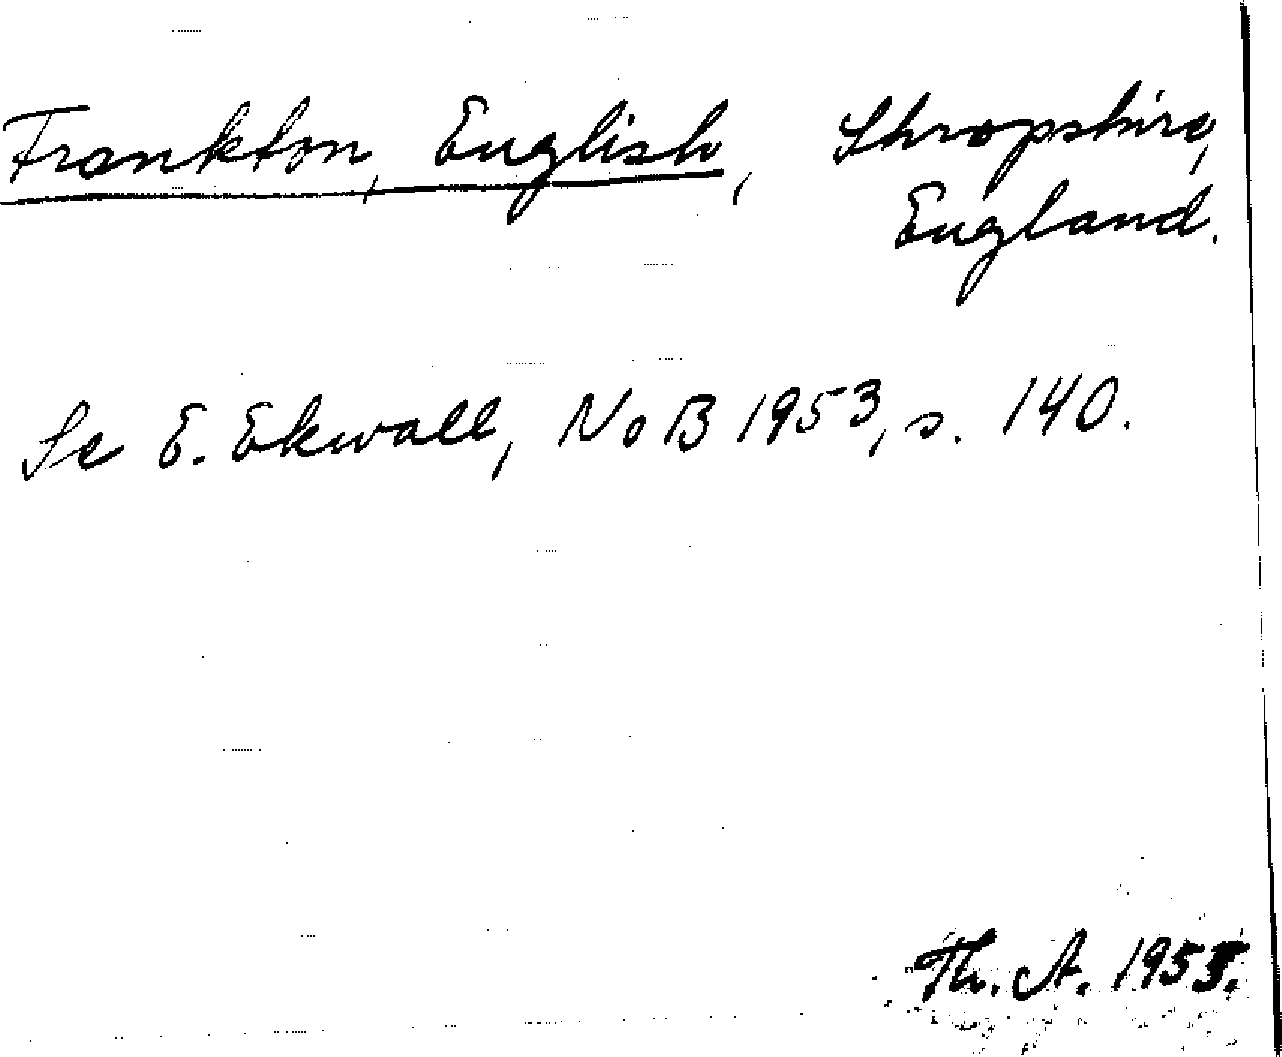 Frankton, English, Shropshire,
England.
Se E. Ekwall, NoB 1953, s. 140.
Th. A. 1955.